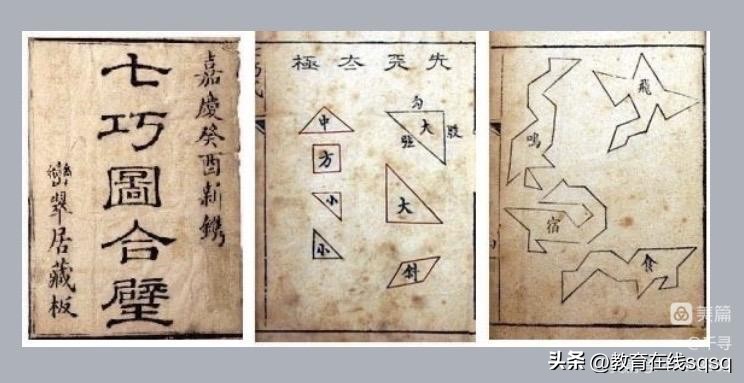 嘉慶癸酉新鐫
七巧圖合璧
巒翠居藏板
先天太極
勾
大
股
弦
大
斜
中
方
小
小
飛
鳴
宿
食
美篇
@千寻
头条 @教育在线sqsq